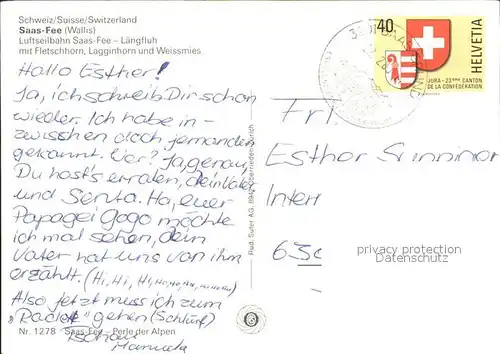 Schweiz/Suisse/Switzerland
Saas-Fee (Wallis)
Luftseilbahn Saas-Fee – Längfluh
mit Fletschhorn, Lagginhorn und Weissmies
Hallo Esther!
Ja, ich schreib Dir schon
wieder. Ich habe in-
zwischen doch jemanden
gekannt. Wer? Ja, genau,
Du hast's erraten, dein Vater
und Senta. Ha, euer
Papagei Gogo möchte
ich mal sehen, dein
Vater hat uns von ihm
erzählt. (Hi, Hi, Hi,
Also jetzt muss ich zum
gehen (Schlurf)
Tschau
Manuela
Nr. 1278 Saas-Fee – Perle der Alpen
Reid. Suter AG, 8942 Oberrieden-Zürich
40
HELVETIA
JURA - 23ème CANTON
DE LA CONFEDERATION
Frl
Esther
Inter
630
privacy protection
Datenschutz